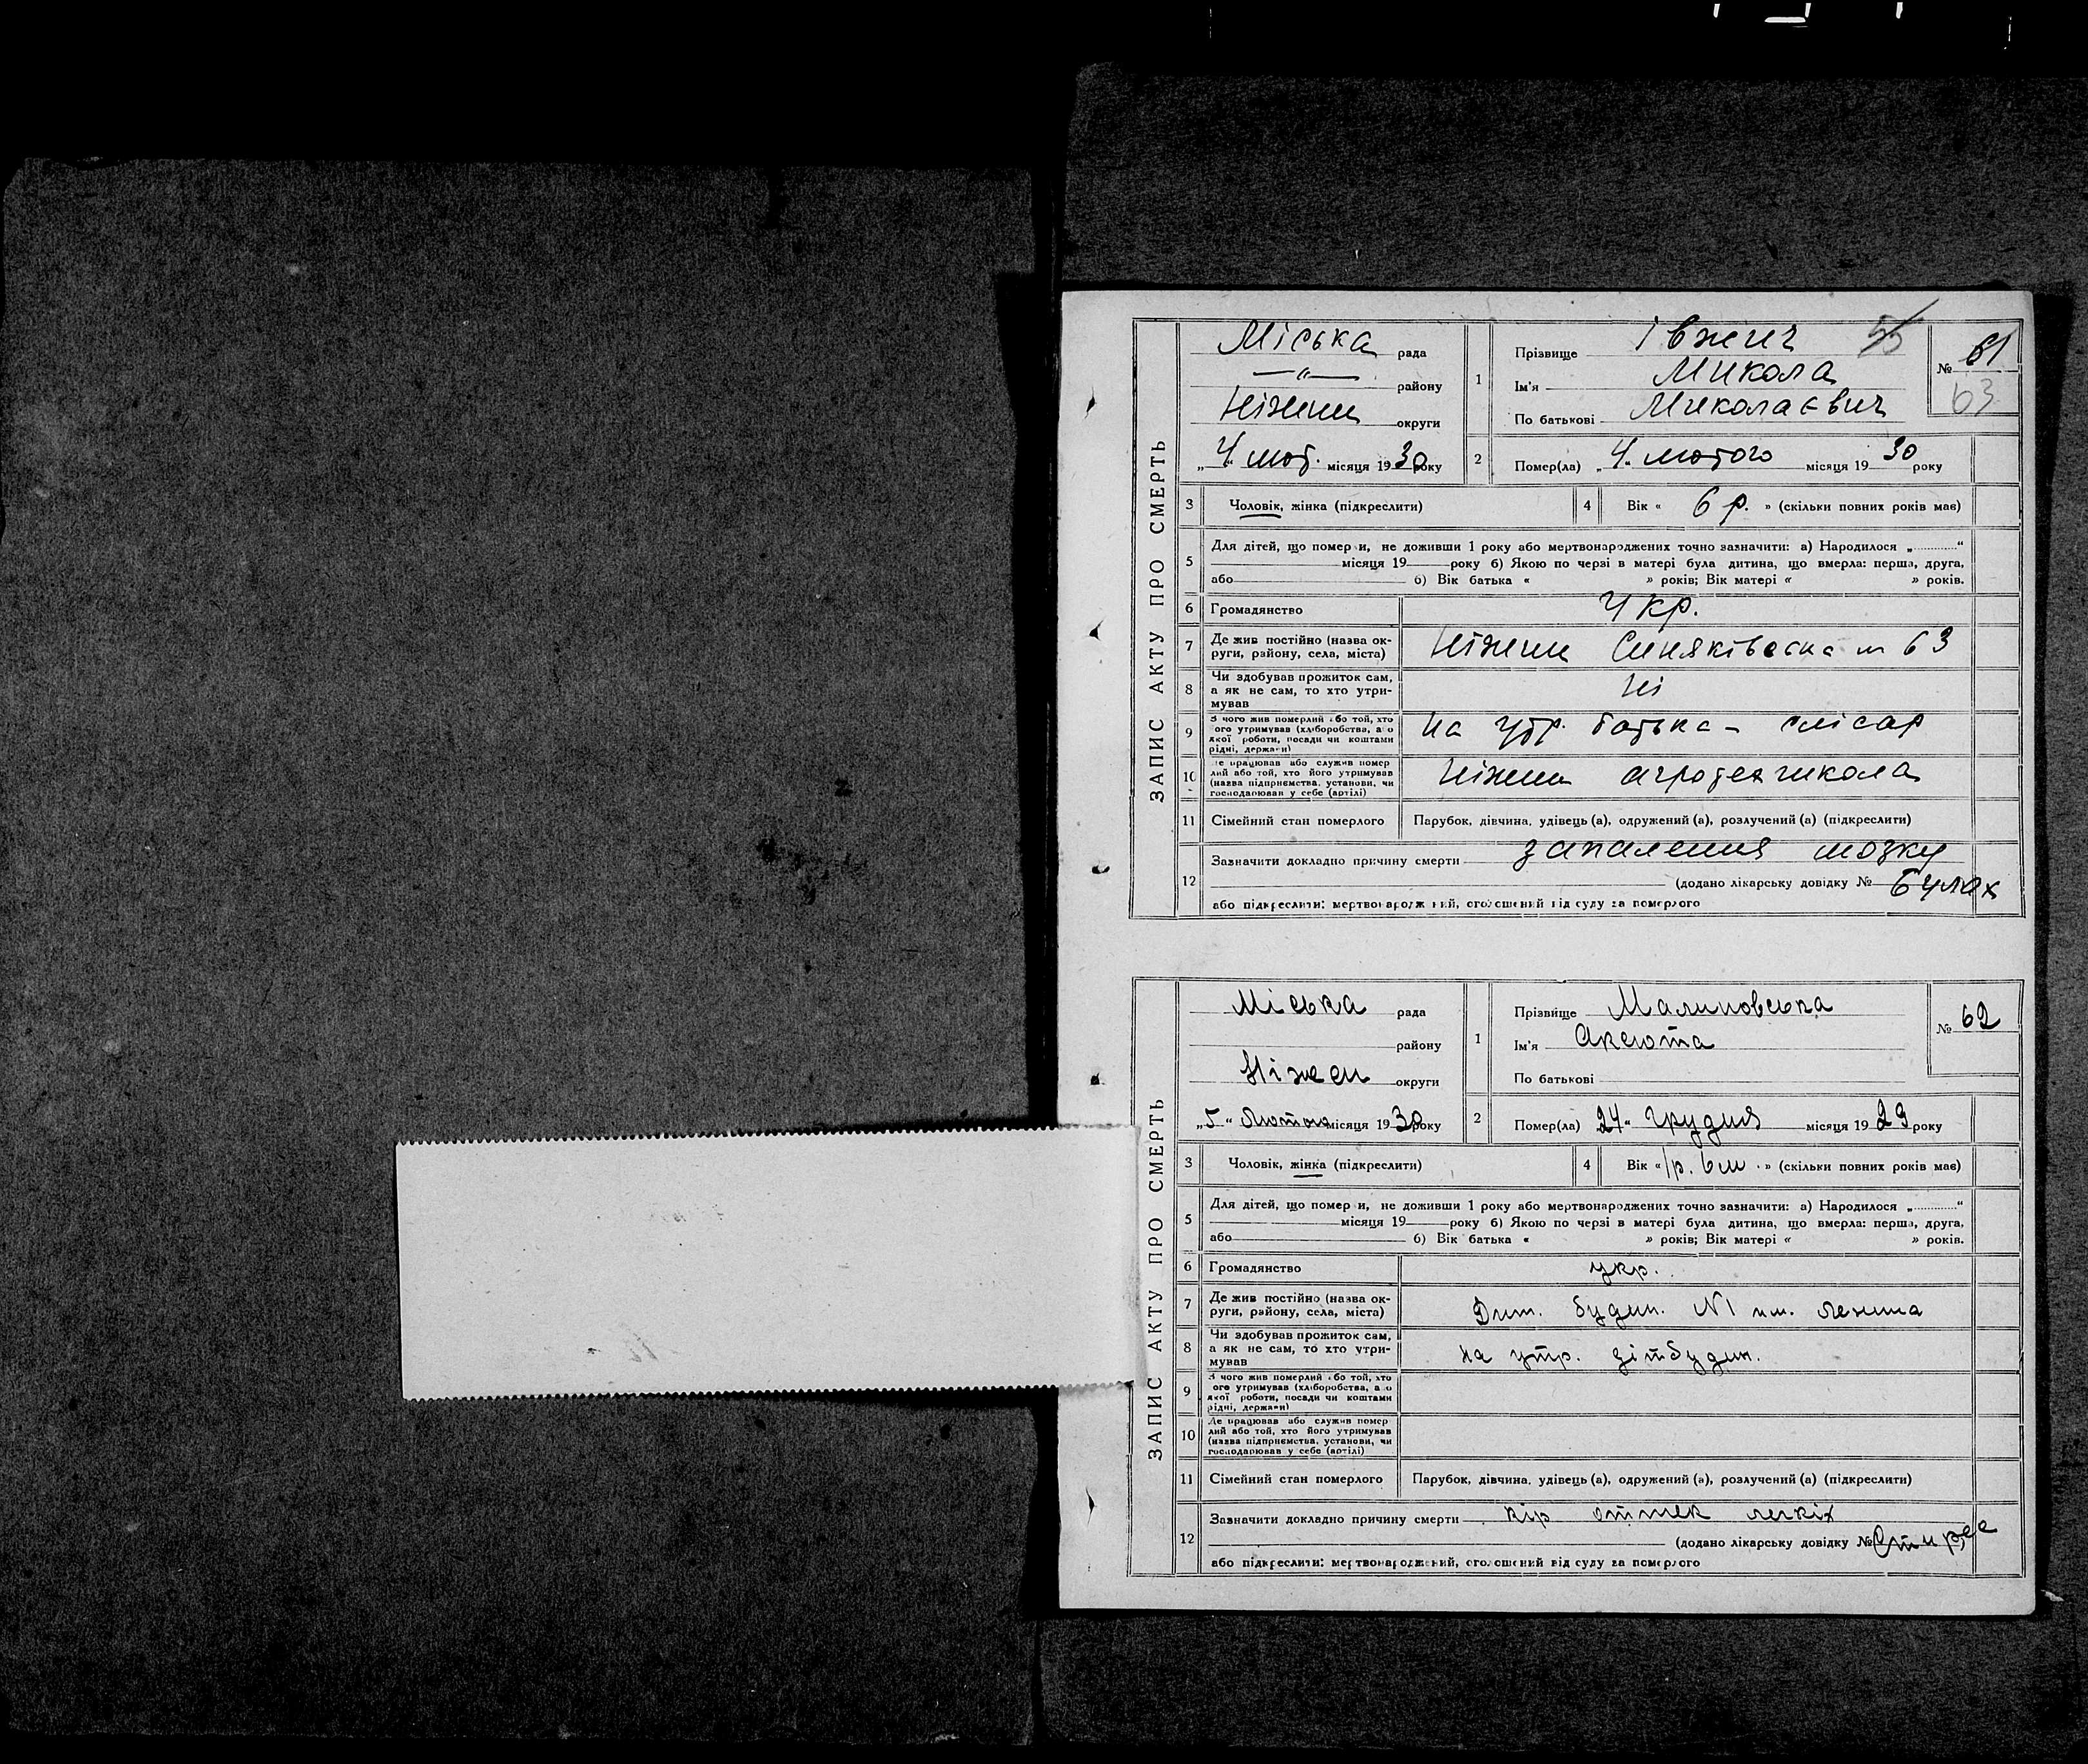 ЗАПИС АКТУ ПРО СМЕРТЬ
Міська рада
—"— району
Ніжин округи
„4" лют. місяця 1930 року
1
Прізвище Івжич
Ім'я Микола
По батькові Миколаєвич
55
№ 61
63
2 Помер(ла) „4" лютого місяця 1930 року
3 Чоловік, жінка (підкреслити)
4 Вік « 6 р. » (скільки повних років має)
5 Для дітей, що помер и, не доживши 1 року або мертвонароджених точно зазначити: а) Народилося „ "
місяця 19 року б) Якою по черзі в матері була дитина, що вмерла: перша, друга,
або б) Вік батька « » років; Вік матері « » років.
6 Громадянство Укр.
7 Де жив постійно (назва ок-
руги, району, села, міста) Ніжин 63
8 Чи здобував прожиток сам,
а як не сам, то хто утри-
мував Ні
9 З чого жив померлий або той, хто
ого утримував (хліборобства, або
якої роботи, посади чи коштами
рідні, держави) на утр. батька – слісар
10 Де працював або служив помер
лий або той, хто його утримував
(назва підприємства, установи, чи
господарював у себе (артілі) Ніжин агротехшкола
11 Сімейний стан померлого Парубок, дівчина, удівець (а), одружений (а), розлучений (а) (підкреслити)
12 Зазначити докладно причину смерти запалення мозку
(додано лікарську довідку № Булах
або підкреслити: мертвонароджений, оголошений від суду за померлого
ЗАПИС АКТУ ПРО СМЕРТЬ
Міська рада
району
Ніжен округи
„5" Лютого місяця 1930 року
1
Прізвище Малиновська
Ім'я Аксюта
По батькові
№ 62
2 Помер(ла) „24" грудня місяця 1929 року
3 Чоловік, жінка (підкреслити)
4 Вік « 1 р. 6 м. » (скільки повних років має)
5 Для дітей, що помер и, не доживши 1 року або мертвонароджених точно зазначити: а) Народилося „ "
місяця 19 року б) Якою по черзі в матері була дитина, що вмерла: перша, друга,
або б) Вік батька « » років; Вік матері « » років.
6 Громадянство укр.
7 Де жив постійно (назва ок-
руги, району, села, міста) Дит. будин. №1 им. Леніна
8 Чи здобував прожиток сам,
а як не сам, то хто утри-
мував на утр. дітбудин.
9 З чого жив померлий або той, хто
ого утримував (хліборобства, або
якої роботи, посади чи коштами
рідні, держави)
10 Де працював або служив помер
лий або той, хто його утримував
(назва підприємства, установи, чи
господарював у себе (артілі)
11 Сімейний стан померлого Парубок, дівчина, удівець (а), одружений (а), розлучений (а) (підкреслити)
12 Зазначити докладно причину смерти кір оттек легкіх
(додано лікарську довідку №
або підкреслити: мертвонароджений, оголошений від суду за померлого